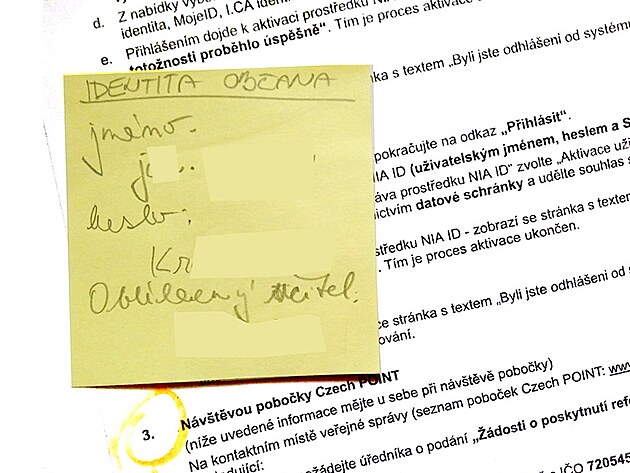 d. Z nabídky
identita, MojeID, I.CA
e. Přihlášením dojde k aktivaci prostředku NIA
totožnosti proběhlo úspěšně“. Tím je proces aktivace
ka s textem „Byli jste odhlášeni od systému
IDENTITA OBČANA
jméno.
j
heslo:
Kr
Oblíbený učitel:
pokračujte na odkaz „Přihlásit“.
IA ID (uživatelským jménem, heslem a S
áva prostředku NIA ID“ zvolte „Aktivace uži
nictvím datové schránky a udělte souhlas s
středku NIA ID - zobrazí se stránka s textem
. Tím je proces aktivace ukončen.
ce stránka s textem „Byli jste odhlášeni od
ování.
3. Návštěvou pobočky Czech POINT
(níže uvedené informace mějte u sebe při návštěvě pobočky)
Na kontaktním místě veřejné správy (seznam poboček Czech POINT: www
ledující:
ožádejte úředníka o podání „Žádosti o poskytnutí refe
s IČO 720545